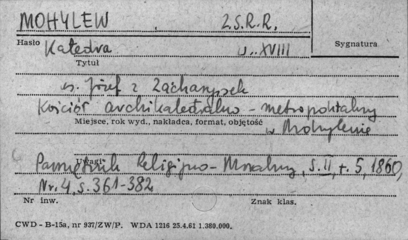 MOHYLEW Z.S.R.R.
Hasło Katedra w. XVIII Sygnatura
Tytuł
Józef z
Kościół archikatedralno-metropolitalny
Miejsce, rok wyd., nakładca, format, objętość
w Mohylewie
Uwagi
Pamiętnik Religijno-Moralny, S.II, t. 5, 1860,
Nr. 4, s. 361-382
Nr inw. Znak klas.
CWD - B-15a, nr 937/ZW/P. WDA 1216 25.4.61 1.389.000.